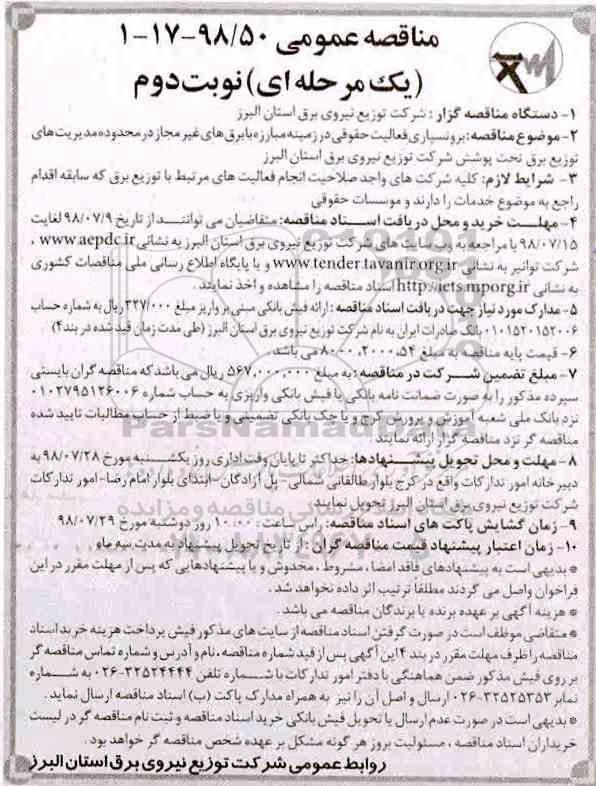 مناقصه عمومی ۹۸/۵۰-۱۷-۱
(یک مرحله ای) نوبت دوم
۱- دستگاه مناقصه گزار : شرکت توزیع نیروی برق استان البرز
۲- موضوع مناقصه: برونسپاری فعالیت حقوقی در زمینه مبارزه با برق های غیر مجاز در محدوده مدیریت های
توزیع برق تحت پوشش شرکت توزیع نیروی برق استان البرز
۳- شرایط لازم: کلیه شرکت های واجد صلاحیت انجام فعالیت های مرتبط با توزیع برق که سابقه اقدام
راجع به موضوع خدمات را دارند و موسسات حقوقی
۴- مهلت خرید و محل دریافت اسناد مناقصه: متقاضیان می توانند از تاریخ ۹۸/۰۷/۹ لغایت
۹۸/۰۷/۱۵ با مراجعه به وب سایت های شرکت توزیع نیروی برق استان البرز به نشانی www.aepdc.ir ،
شرکت توانیر به نشانی www.tender.tavanir.org.ir و یا پایگاه اطلاع رسانی ملی مناقصات کشوری
به نشانی http://iets.mporg.ir اسناد مناقصه را مشاهده و اخذ نمایند .
۵- مدارک مورد نیاز جهت دریافت اسناد مناقصه : ارائه فیش بانکی مبنی بر واریز مبلغ ۳۲۷/۰۰۰ ریال به شماره حساب
۰۱۰۱۵۲۰۱۵۲۰۰۶ بانک صادرات ایران به نام شرکت توزیع نیروی برق استان البرز (طی مدت زمان قید شده در بند ۴)
۶- قیمت پایه مناقصه به مبلغ می باشد .
۷- مبلغ تضمین شرکت در مناقصه : به مبلغ ۵۶۷,۰۰۰,۰۰۰ ریال می باشد که مناقصه گران بایستی
سپرده مذکور را به صورت ضمانت نامه بانکی یا فیش بانکی واریزی به حساب شماره ۰۱۰۲۷۹۵۱۲۶۰۰۶
نزد بانک ملی شعبه آموزش و پرورش کرج و یا چک بانکی تضمینی و یا ضبط از حساب مطالبات تایید شده
مناقصه گر نزد مناقصه گزار ارائه نمایند .
۸- مهلت و محل تحویل پیشنهادها: حداکثر تا پایان وقت اداری روز یکشنبه مورخ ۹۸/۰۷/۲۸ به
دبیرخانه امور تدارکات واقع در کرج بلوار طالقانی شمالی - پل آزادگان - ابتدای بلوار امام رضا - امور تدارکات
شرکت توزیع نیروی برق استان البرز تحویل نمایند .
۹- زمان گشایش پاکت های اسناد مناقصه: راس ساعت : ۱۰:۰۰ روز دوشنبه مورخ ۹۸/۰۷/۲۹
۱۰- زمان اعتبار پیشنهاد قیمت مناقصه گران : از تاریخ تحویل پیشنهاد به مدت سه ماه
* بدیهی است به پیشنهادهای فاقد امضا ، مشروط ، مخدوش و یا پیشنهادهایی که پس از مهلت مقرر در این
فراخوان واصل می گردند مطلقا ترتیب اثر داده نخواهد شد .
* هزینه آگهی بر عهده برنده یا برندگان مناقصه می باشد .
* متقاضی موظف است در صورت گرفتن اسناد مناقصه از سایت های مذکور فیش پرداخت هزینه خرید اسناد
مناقصه را ظرف مهلت مقرر در بند ۴ این آگهی پس از قید شماره مناقصه، نام و آدرس و شماره تماس مناقصه گر
بر روی فیش مذکور ضمن هماهنگی با دفتر امور تدارکات با شماره تلفن ۳۲۵۲۴۴۴۴-۰۲۶ به شماره
نمابر ۳۲۵۲۵۳۵۳-۰۲۶ ارسال و اصل آن را نیز به همراه مدارک پاکت (ب) اسناد مناقصه ارسال نماید .
* بدیهی است در صورت عدم ارسال یا تحویل فیش بانکی خرید اسناد مناقصه و ثبت نام مناقصه گر در لیست
خریداران اسناد مناقصه ، مسئولیت بروز هر گونه مشکل بر عهده شخص مناقصه گر خواهد بود .
روابط عمومی شرکت توزیع نیروی برق استان البرز